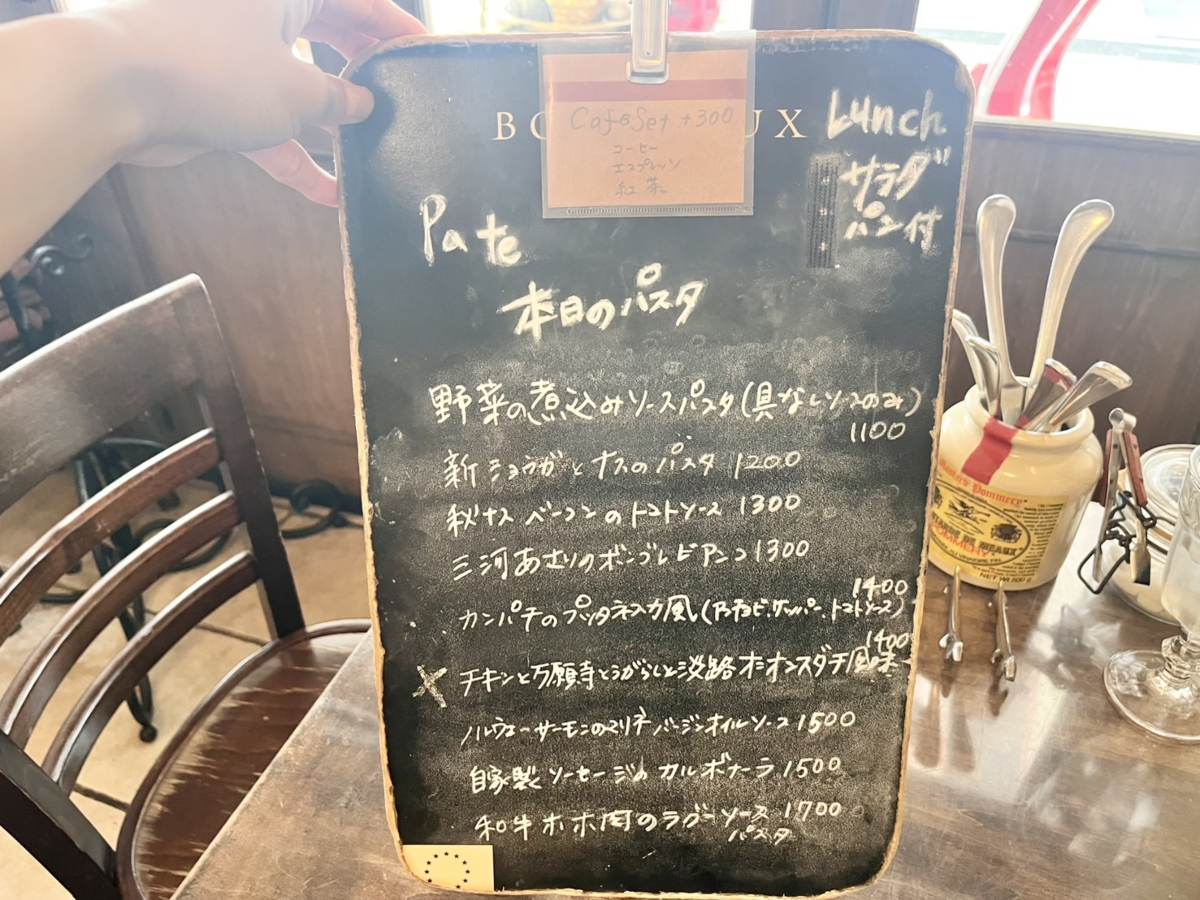 Lunch
サラダ
パン付
Cafe Set +300
コーヒー
エスプレッソ
紅茶
Pate
本日のパスタ
野菜の煮込みソースパスタ(具なしソースのみ)
1100
新ショウガとナスのパスタ 1200
秋ナスベーコンのトマトソース 1300
三河あさりのボンゴレビアンコ 1300
1400
カンパチのプッタネスカ風(アンチョビ、ケッパー、トマトソース)
1400
× チキンと万願寺とうがらしと淡路オニオンスダチ風味
ノルウェーサーモンのマリネ バージンオイルソース 1500
自家製ソーセージのカルボナーラ 1500
和牛ホホ肉のラグーソース 1700
パスタ
MOUTARDE DE MEAUX
POMMERY
NET WT. 500 g